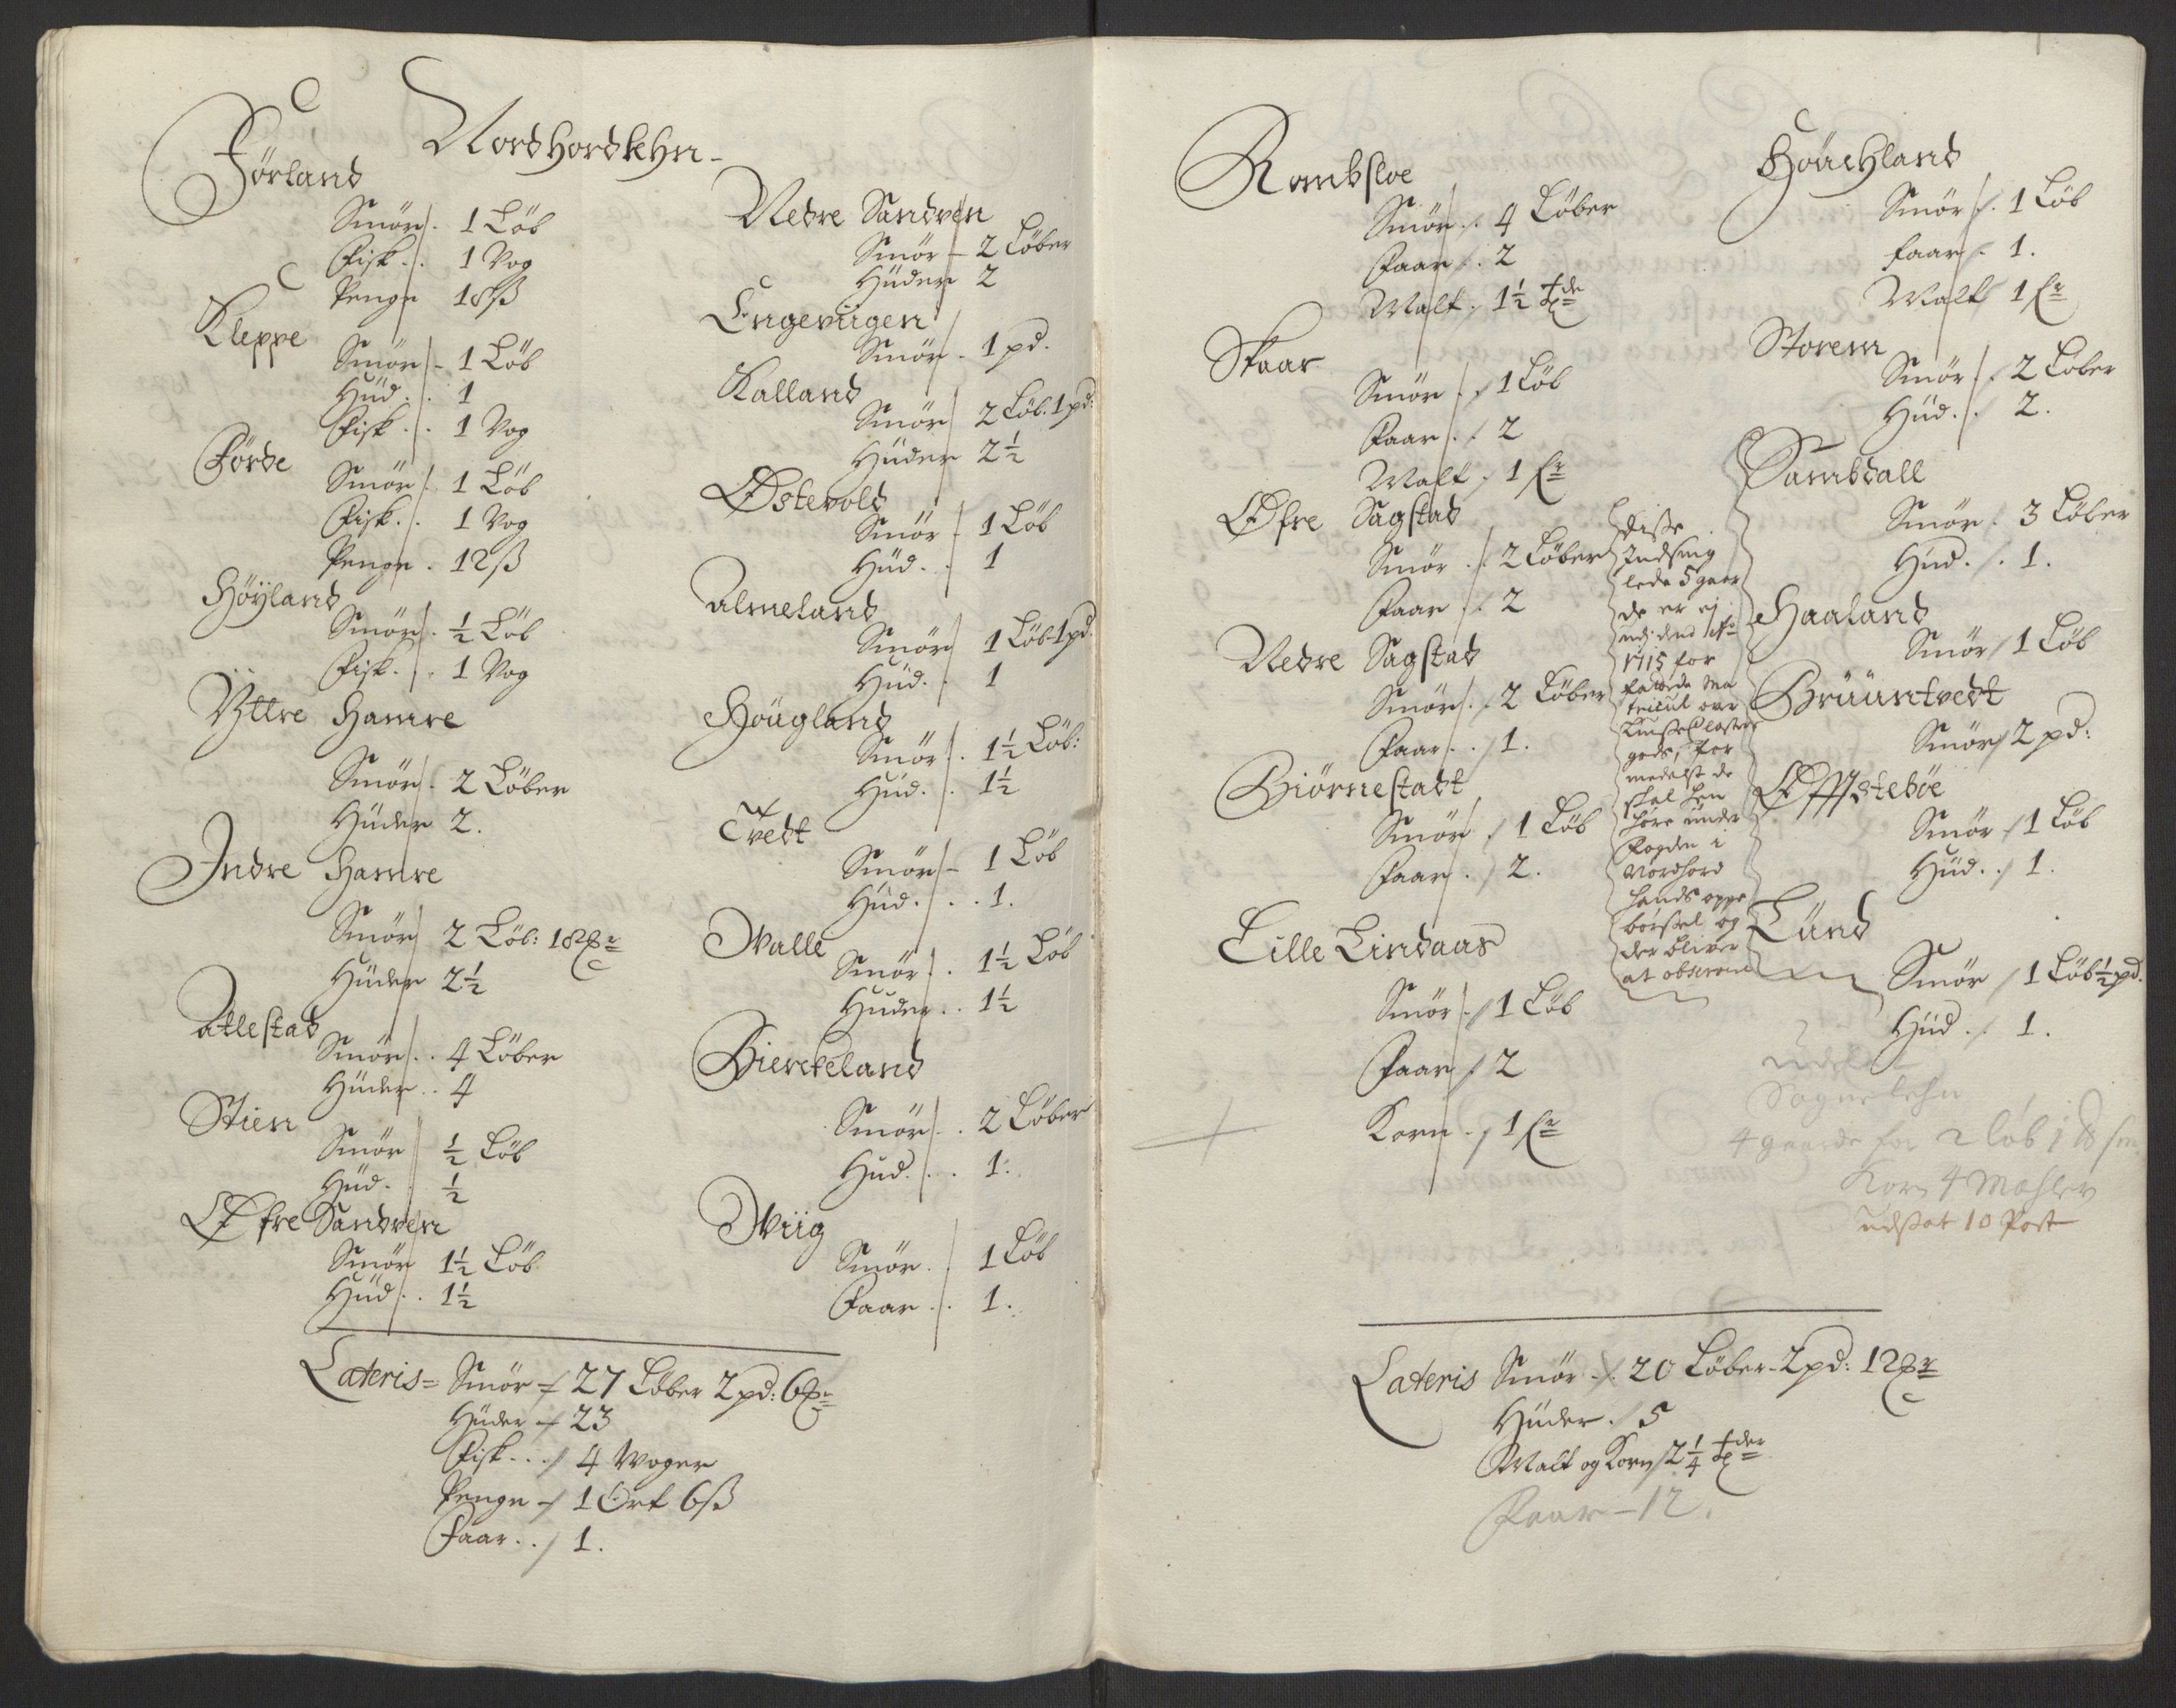 Nordhordlehn
Jörland
Smör. 1 Löb
Fisk.. 1 Vog
Penge 18ß
Kleppe
Smör - 1 Löb
Hüd. . 1
Fisk . . 1 Vog
Förde
Smör 1 Löb
Fisk. . 1 Vog
Penge . 12ß
Höÿland
Smör . ½ Löb
Fisk. . 1 Vog
Ÿttre Hamre
Smör . 2 Löber
Hüder 2.
Indre Hamre
Smör 2 Löb: 18
Hüder 2½
Atlestad
Smör . . 4 Löber
Hüder . . 4
Stien
Smör ½ Löb
Hüd. ½
Øfre Sandven
Smör 1½ Löb
Hüd . . 1½
Nedre Sandven
Smör - 2 Löber
Hüder 2
Engeviigen
Smör . 1 pd.
Kalland
Smör 2 Löb. 1 pd:
Hüder 2½
Østevold
Smör - 1 Löb
Hüd. . 1
Almeland
Smör 1 Löb-1pd.
Hüd. . 1
Höugland
Smör . . 1½ Löb:
Hüd. . 1½
Tvedt
Smör - 1 Löb
Hüd. . . 1.
Walle
Smör . . 1½ Löb
Hüder . . 1½
Biercheland
Smör . . 2 Löber
Hüd. . . 1.
Wiig
Smör . 1 Löb
Faar . . 1.
Lateris = Smör - 27 Löber 2 pd: 6
Hüder - 23
Fisk . . . 4 Woger
Penge - 1 Ort 6ß
Faar . . 1.
Rombsloe
Smör . 4 Löber
Faar . 2
Malt . 1½ tde
Skaar
Smör . 1 Löb
Faar . . 2
Malt . 1
Øfre Sagstad
Smör . 2 Löber
Faar . . 2
Nedre Sagstad
Smör . . 2 Löber
Faar . . 1.
Biörnestadt
Smör . 1 Löb
Faar . 2.
Lille Lindaas
Smör . 1 Löb
Faar . 2
Korn . 1
disse
Indsmig
lede 5 gaar
de er ej
1715 for
fattede Ma
tricul over
Closter
gods, for
medelst de
skal hen
höre under
Fogden i
Nordhord
lands oppe
börsel og
der bliver
at observere
Höuchland
Smör . 1 Löb
Faar . 1.
Malt 1
Storem
Smör . 2 Löber
Hüd. . 2.
Sambdall
Smör . 3 Löber
Hüd. . 1.
Haaland
Smör 1 Löb
Brüüntvedt
Smör 2 pd:
Øffsteböe
Smör 1 Löb
Hüd. . 1.
Lünd
Smör 1 Löb ½ pd.
Hüd . . 1.
Sognelehn
4 gaarde for 2 löb 1
Korn 4 Mahler
udsat 10 Post
Lateris Smör . 20 Löber - 2 pd: 12
Hüder . 5
Malt og Korn 2¼ tder
Faar - 12.